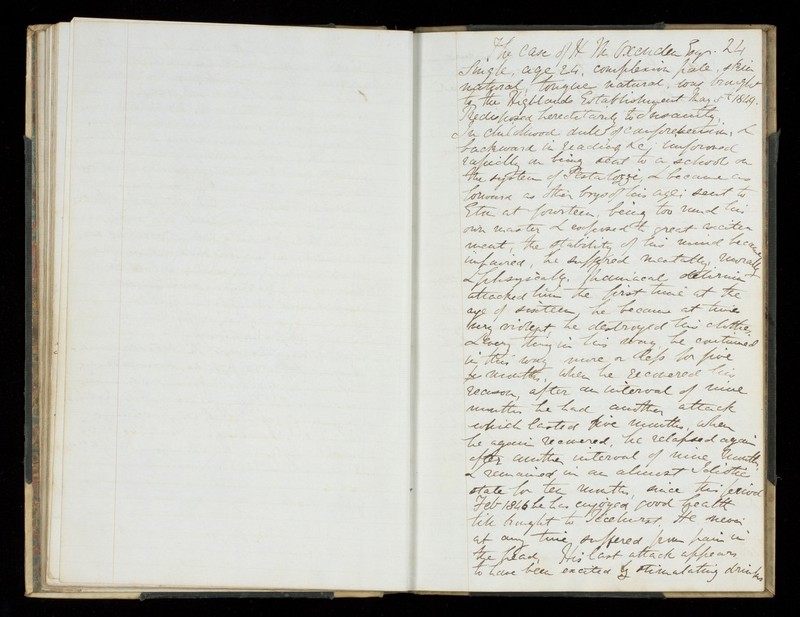 The case of H M Oxenden Esqr. 24
Single, age 24, complexion pale, skin
natural, tongue natural, was brought
to the Highlands Establishment May 5th 1849.
Predisposed hereditarily to insanity,
In childhood dull of comprehension, &
backward in reading &c; improved
rapidly on being sent to a school on
the system of Pestalozzi, & became as
forward as other boys of his age; sent to
Eton at fourteen, being too much his
own master & exposed to great excite
ment, the stability of his mind became
impaired, he suffered mentally, morally
& physically. Maniacal delirium
attacked him the first time at the
age of sixteen, he became at time
very violent, he destroyed his clothes,
& every thing in his way, he continued
in this way more or less for five
months, when he recovered his
reason, after an interval of nine
months he had another attack
which lasted five months, when
he again recovered, he relapsed again
after another interval of nine months,
& remained in an almost Idiotic
state for ten months, since this period
Feb 1846 he has enjoyed good health
till brought to Ticehurst. He never
at any time suffered from pain in
the head. His last attack appears
to have been excited by stimulating drinks